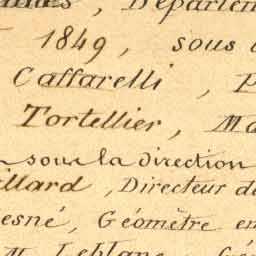 , Départem
1849, sous
Caffarelli, P
Tortellier, Ma
sous la direction
illard, Directeur de
esné, Géomètre en
M. Leblanc, Gé